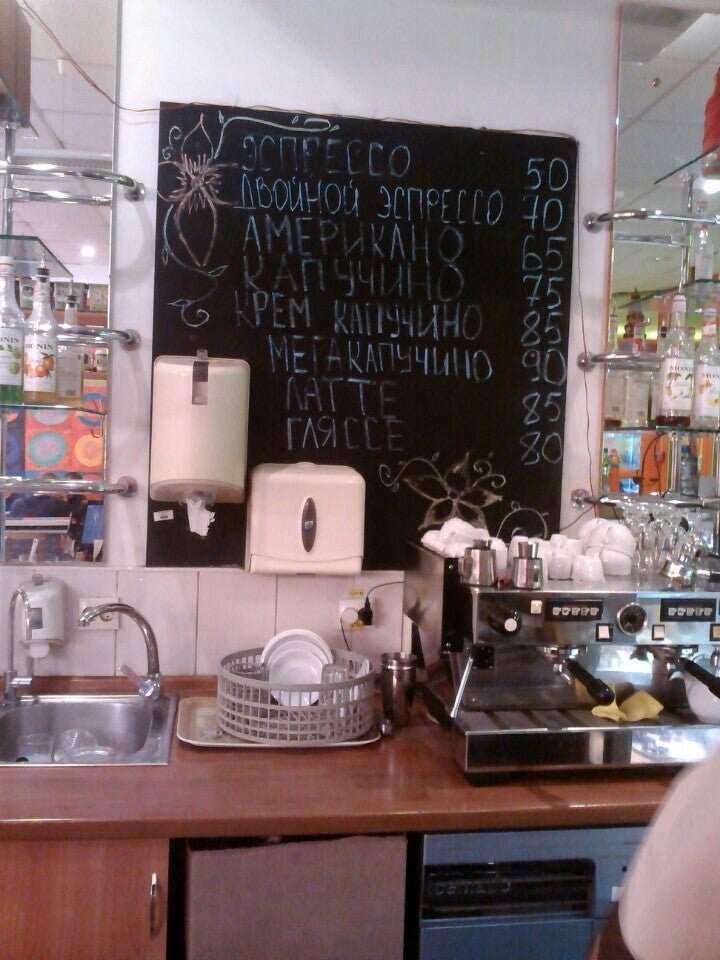 ЭСПРЕССО 50
ДВОЙНОЙ ЭСПРЕССО 70
АМЕРИКАНО 65
КАПУЧИНО 75
КРЕМ КАПУЧИНО 85
МЕГАКАПУЧИНО 90
ЛАТТЕ 85
ГЛЯССЕ 80
MONIN
Icematic